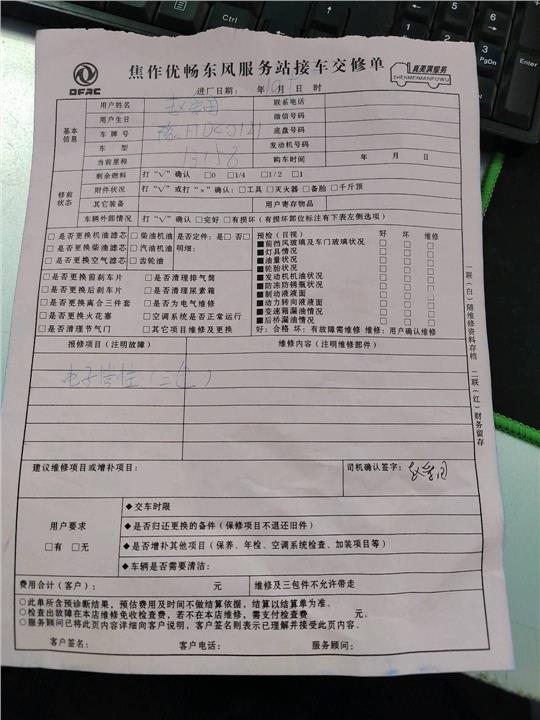 DFAC
焦作优畅东风服务站接车交修单
真美满服务
ZHENMEIMANFUWU
进厂日期： 年 月 日 时
基本信息
用户姓名 联系电话
用户生日 微信号码
车牌号 底盘号码
车型 发动机号码
当前里程 13158 购车时间 年 月 日
修前状态
剩余燃料 打“√”确认 □0 □1/4 □1/2 □1
附件状况 打“√”或打“×”确认：□工具 □灭火器 □备胎 □千斤顶
其它装备 用户寄存物品
车辆外部情况 打“√”确认 □完好 □有损坏（有损坏部位标注有下表左侧选项）
□是否更换机油滤芯 □柴油机油 是否定件：是□ 否□
□是否更换柴油滤芯 □汽油机油 明细：
□是否更换空气滤芯 □齿轮油
□是否更换前刹车片 □是否清理排气筒
□是否更换后刹车片 □是否清理尿素箱
□是否更换离合三件套 □是否为电气维修
□是否更换火花塞 □空调系统是否正常运行
□是否清理节气门 □其它项目维修及更换
预检（目视） 好 坏 维修
■前挡风玻璃及车门玻璃状况 □ □ □
■灯具情况 □ □ □
■油量状况 □ □ □
■轮胎状况 □ □ □
■发动机机油状况 □ □ □
■防冻防锈瓶状况 □ □ □
■制动液液面 □ □ □
■动力转向液液面 □ □ □
■变速箱漏油情况 □ □ □
■后桥漏油情况 □ □ □
好：合格 坏：有故障需维修 维修：用户确认维修
报修项目（注明故障） 维修内容（注明维修部件）
建议维修项目或增补项目： 司机确认签字：
用户要求
□有 □无
◆交车时限
◆是否归还更换的备件（保修项目不退还旧件）
◆是否增补其他项目（保养、年检、空调系统检查、加装项目等）
◆车辆是否需要清洁：
费用合计（客户）： 元 维修及三包件不允许带走
○此单所含预诊断结果，预估费用及时间不做结算依据，结算以结算单为准。
○检查出故障在本店维修免收检查费，若不在本店维修，需支付检查费 元。
○服务顾问已将此页内容详细向客户说明，客户签名则表示已理解并接受此页内容。
客户签名： 客户电话： 服务顾问：
一联（白）随维修资料存档 二联（红）财务留存
Ctrl
PgDn
End